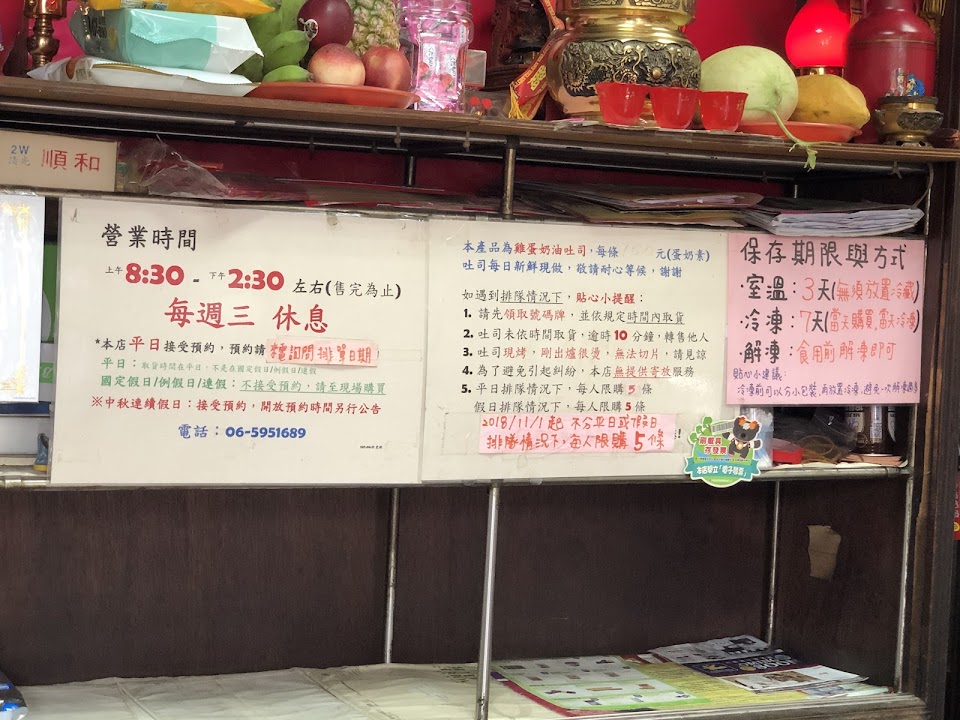 順和
營業時間
上午 8:30 - 下午 2:30 左右(售完為止)
每週三 休息
*本店平日接受預約，預約請
電詢問 排單日期
平日：取貨時間在平日，不是在國定假日/例假日/連假
國定假日/例假日/連假：不接受預約，請至現場購買
※中秋連續假日：接受預約，開放預約時間另行公告
電話：06-5951689
本產品為雞蛋奶油吐司，每條 元(蛋奶素)
吐司每日新鮮現做，敬請耐心等候，謝謝
如遇到排隊情況下，貼心小提醒：
1. 請先領取號碼牌，並依規定時間內取貨
2. 吐司未依時間取貨，逾時 10 分鐘，轉售他人
3. 吐司現烤，剛出爐很燙，無法切片，請見諒
4. 為了避免引起糾紛，本店無提供寄放服務
5. 平日排隊情況下，每人限購 5 條
假日排隊情況下，每人限購 5 條
2018/11/1起 不分平日或假日
排隊情況下，每人限購 5條
保存期限與方式
·室溫：3天(無須放置冷藏)
·冷凍：7天(當天購買,當天冷凍)
·解凍：食用前解凍即可
貼心小建議：
冷凍前可以分小包裝,再放置冷凍,避免一次解凍